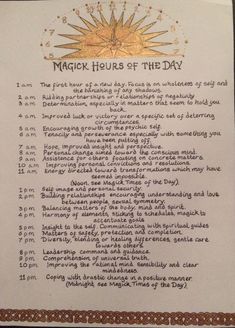 12
11 1
10 2
9 3
8 4
7 5
MAGICK HOURS OF THE DAY
1 am The first hour of a new day. Focus is on wholeness of self and
the banishing of any shadows.
2 am Aiding partnerships or relationships of negativity.
3 am Determination, especially in matters that seem to hold you
back.
4 am Improved luck or victory over a specific set of deterring
circumstances.
5 am Encouraging growth of the psychic self.
6 am Tenacity and perseverance especially with something you
have been putting off.
7 am Hope, improved insight and perspective.
8 am Personal change aimed toward the conscious mind.
9 am Assistance for others focusing on concrete matters.
10 am Improving personal convictions and resolutions.
11 am Energy directed toward transformations which may have
seemed impossible.
(Noon, see Magick Times of the Day)
1 pm Self image and personal security.
2 pm Building relationships, encouraging understanding and love
between people, sexual symmetry.
3 pm Balancing matters of the body, mind and spirit.
4 pm Harmony of elements, sticking to schedules, magick to
accentuate goals.
5 pm Insight to the self. Communicating with spiritual guides
6 pm Matters of safety, protection and completion.
7 pm Diversity, blending or healing differences, gentle care
towards others.
8 pm Leadership, command and guidance.
9 pm Comprehension of universal truth.
10 pm Improving the rational mind, sensibility and clear
mindedness.
11 pm Coping with drastic change in a positive manner.
(Midnight see Magick Times of the Day)